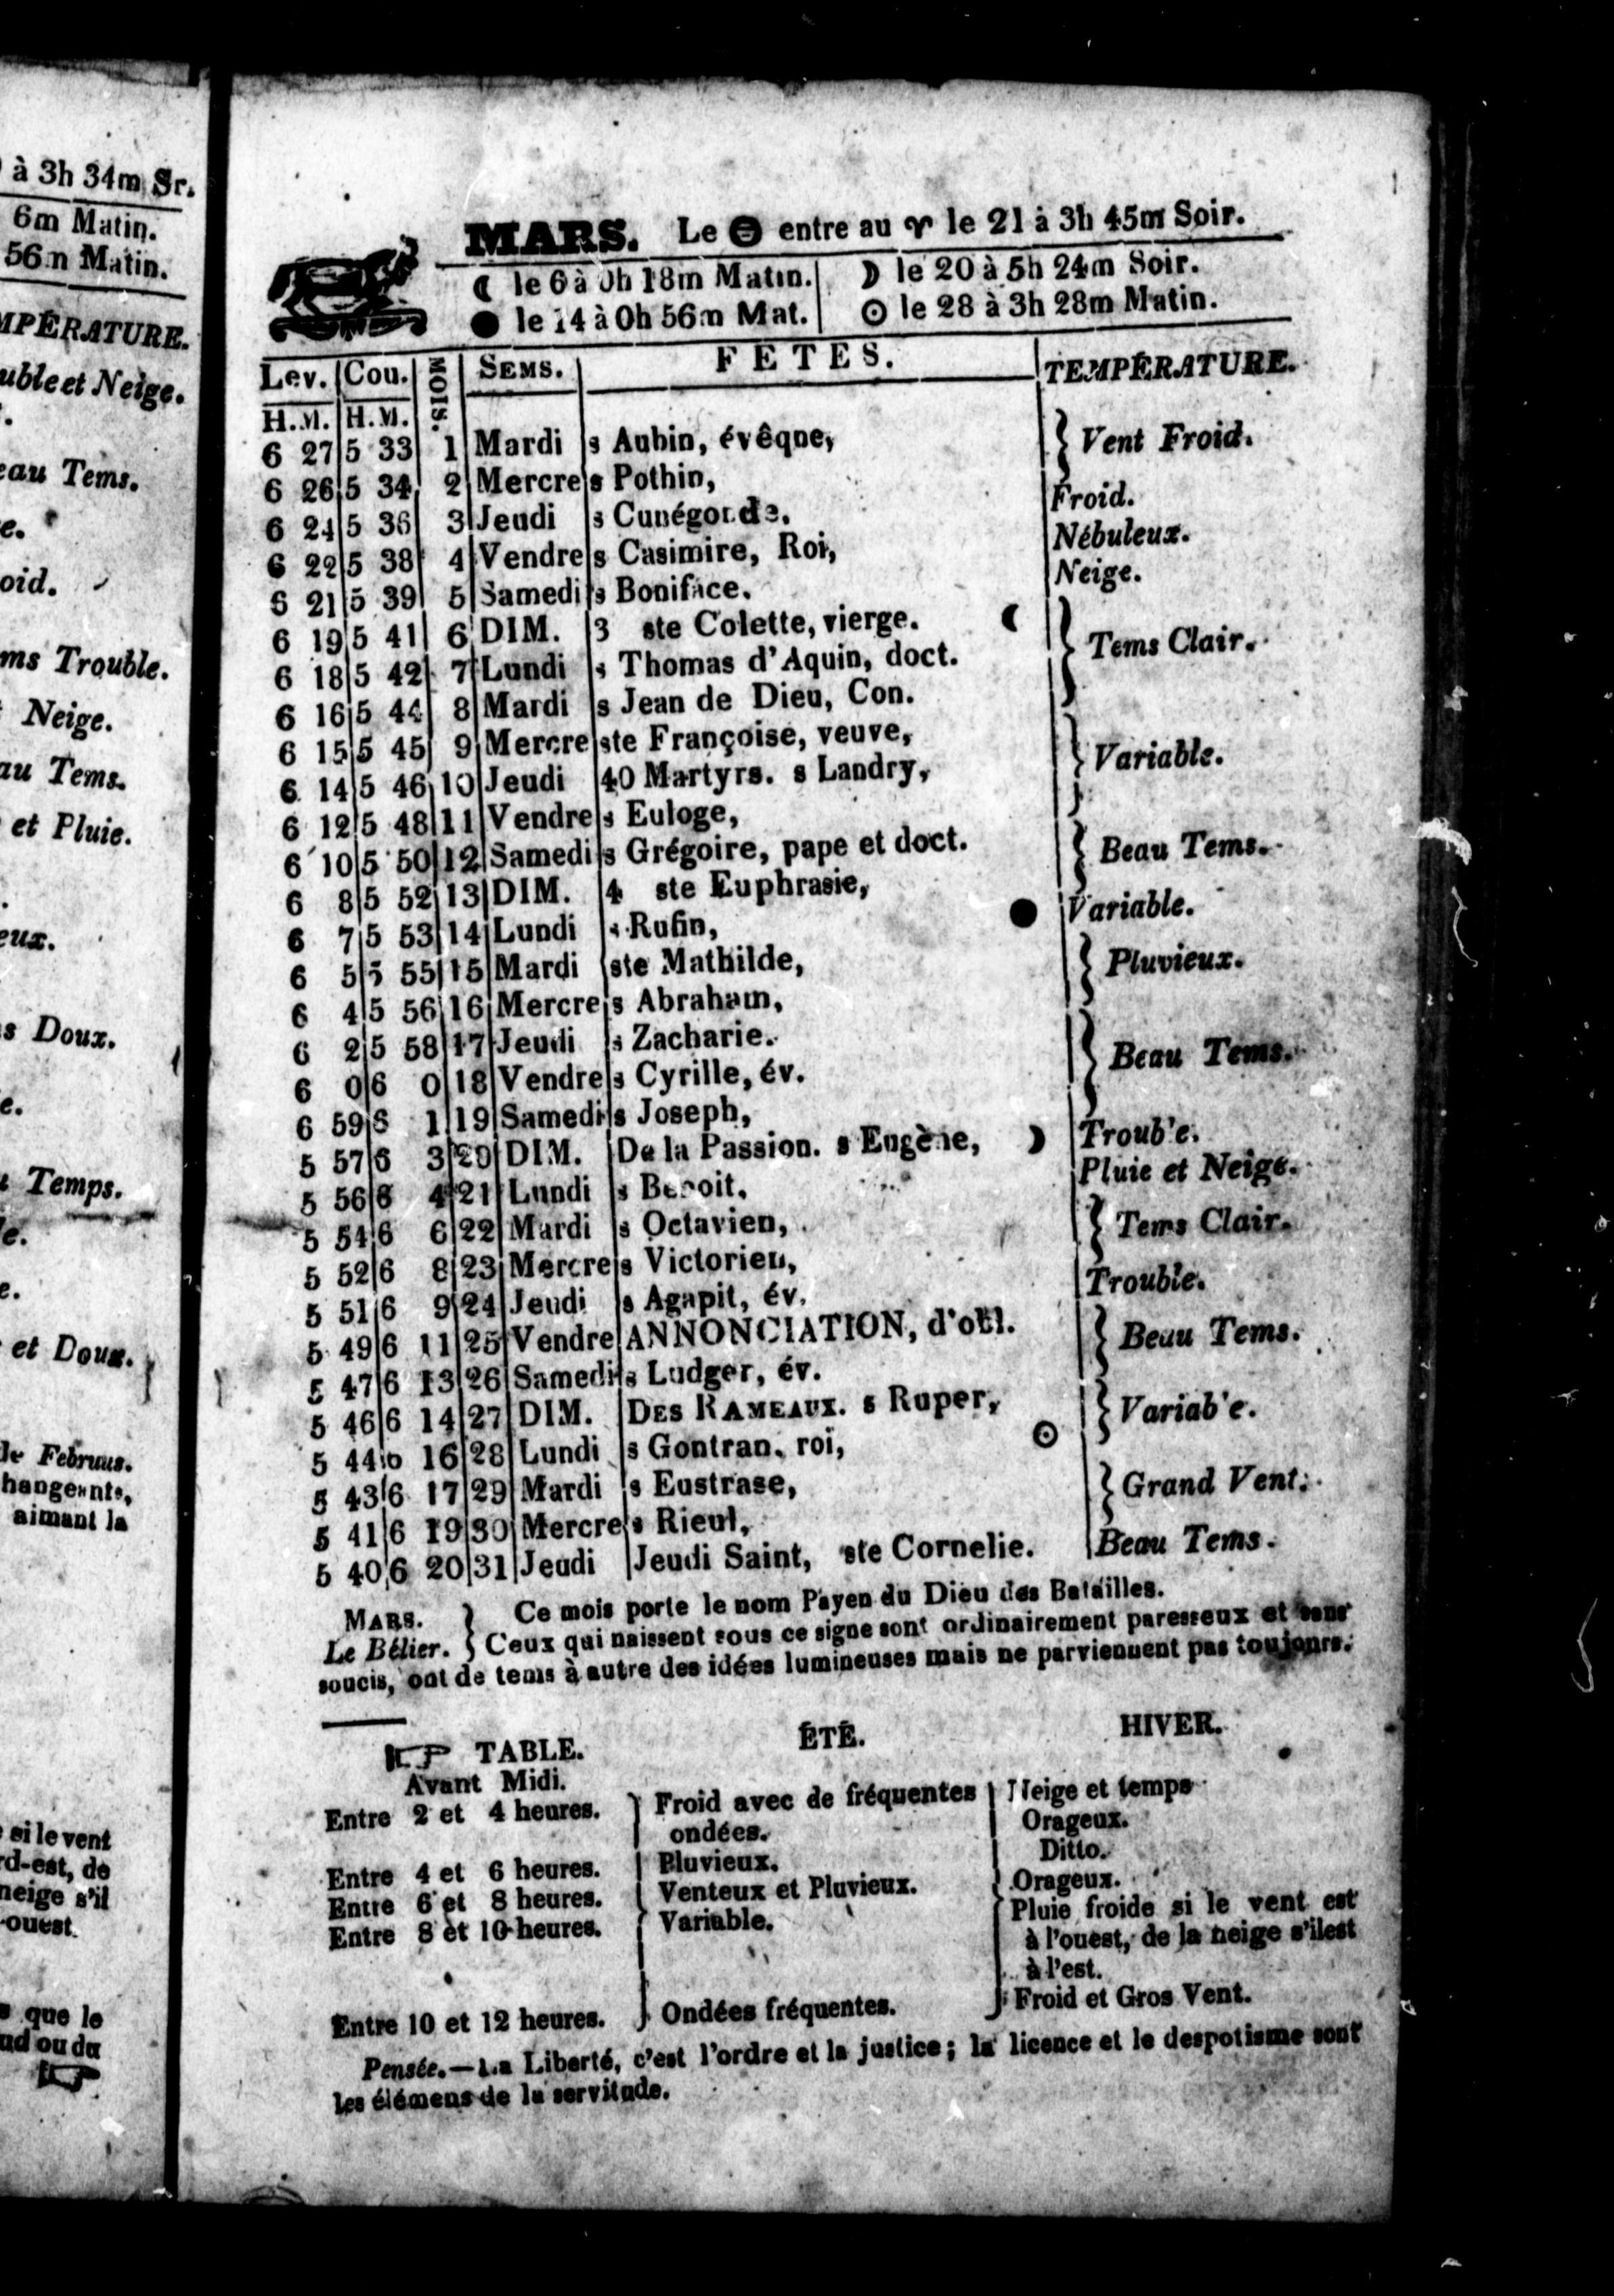 à 3h 34m Sr.
6m Matin.
56m Matin.
MPÉRATURE.
uble et Neige.
eau Tems.
e.
oid.
ms Trouble.
Neige.
au Tems.
et Pluie.
eux.
s Doux.
e.
Temps.
le.
e.
et Doux.
de Februus.
hangeants,
aimant la
si le vent
rd-est, de
neige s'il
-ouest.
s que le
ud ou du
MARS. Le ⊖ entre au ♈ le 21 à 3h 45m Soir.
☾ le 6 à 0h 18m Matin. ☽ le 20 à 5h 24m Soir.
● le 14 à 0h 56m Mat. ☉ le 28 à 3h 28m Matin.
Lev. Cou. MOIS. SEMS. FETES. TEMPÉRATURE.
H.M. H.M.
6 27 5 33 1 Mardi s Aubin, évêque, Vent Froid.
6 26 5 34 2 Mercre s Pothin, Froid.
6 24 5 36 3 Jeudi s Cunégonde. Nébuleux.
6 22 5 38 4 Vendre s Casimire, Roi, Neige.
6 21 5 39 5 Samedi s Boniface.
6 19 5 41 6 DIM. 3 ste Colette, vierge. ☾ Tems Clair.
6 18 5 42 7 Lundi s Thomas d'Aquin, doct.
6 16 5 44 8 Mardi s Jean de Dieu, Con.
6 15 5 45 9 Mercre ste Françoise, veuve, Variable.
6 14 5 46 10 Jeudi 40 Martyrs. s Landry,
6 12 5 48 11 Vendre s Euloge,
6 10 5 50 12 Samedi s Grégoire, pape et doct. Beau Tems.
6 8 5 52 13 DIM. 4 ste Euphrasie,
6 7 5 53 14 Lundi s Rufin, ● Variable.
6 5 5 55 15 Mardi ste Mathilde, Pluvieux.
6 4 5 56 16 Mercre s Abraham,
6 2 5 58 17 Jeudi s Zacharie. Beau Tems.
6 0 6 0 18 Vendre s Cyrille, év.
6 59 6 1 19 Samedi s Joseph,
5 57 6 3 20 DIM. De la Passion. s Eugène, ☽ Trouble.
5 56 6 4 21 Lundi s Benoit. Pluie et Neige.
5 54 6 6 22 Mardi s Octavien, Tems Clair.
5 52 6 8 23 Mercre s Victorien,
5 51 6 9 24 Jeudi s Agapit, év. Trouble.
5 49 6 11 25 Vendre ANNONCIATION, d'obl. Beau Tems.
5 47 6 13 26 Samedi s Ludger, év.
5 46 6 14 27 DIM. DES RAMEAUX. s Ruper, Variable.
5 44 6 16 28 Lundi s Gontran, roi, ☉
5 43 6 17 29 Mardi s Eustrase, Grand Vent.
5 41 6 19 30 Mercre s Rieul,
5 40 6 20 31 Jeudi Jeudi Saint, ste Cornelie. Beau Tems.
MARS. Ce mois porte le nom Payen du Dieu des Batailles.
Le Bélier. Ceux qui naissent sous ce signe sont ordinairement paresseux et sans
soucis, ont de tems à autre des idées lumineuses mais ne parviennent pas toujours.
☞ TABLE. ÉTÉ. HIVER.
Avant Midi.
Entre 2 et 4 heures. Froid avec de fréquentes Neige et temps
ondées. Orageux.
Entre 4 et 6 heures. Pluvieux. Ditto.
Entre 6 et 8 heures. Venteux et Pluvieux. Orageux.
Entre 8 et 10 heures. Variable. Pluie froide si le vent est
à l'ouest, de la neige s'ilest
à l'est.
Entre 10 et 12 heures. Ondées fréquentes. Froid et Gros Vent.
Pensée.—La Liberté, c'est l'ordre et la justice; la licence et le despotisme sont
les élémens de la servitude.